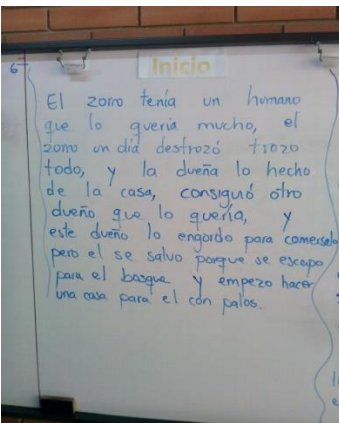 6
Inicio
El zorro tenía un humano
que lo quería mucho, el
zorro un día destrozó trozo
todo, y la dueña lo hecho
de la casa, consiguó otro
dueño que lo quería, y
este dueño lo engordo para comerselo
pero el se salvo porque se escapo
para el bosque y empezo hacer
una casa para el con palos.